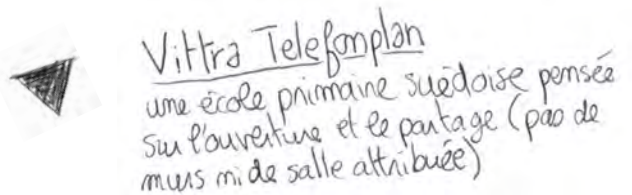 Vittra Telefonplan
une école primaine suédoise pensée
sur l'ouverture et le partage (pas de
murs ni de salle attribuée)